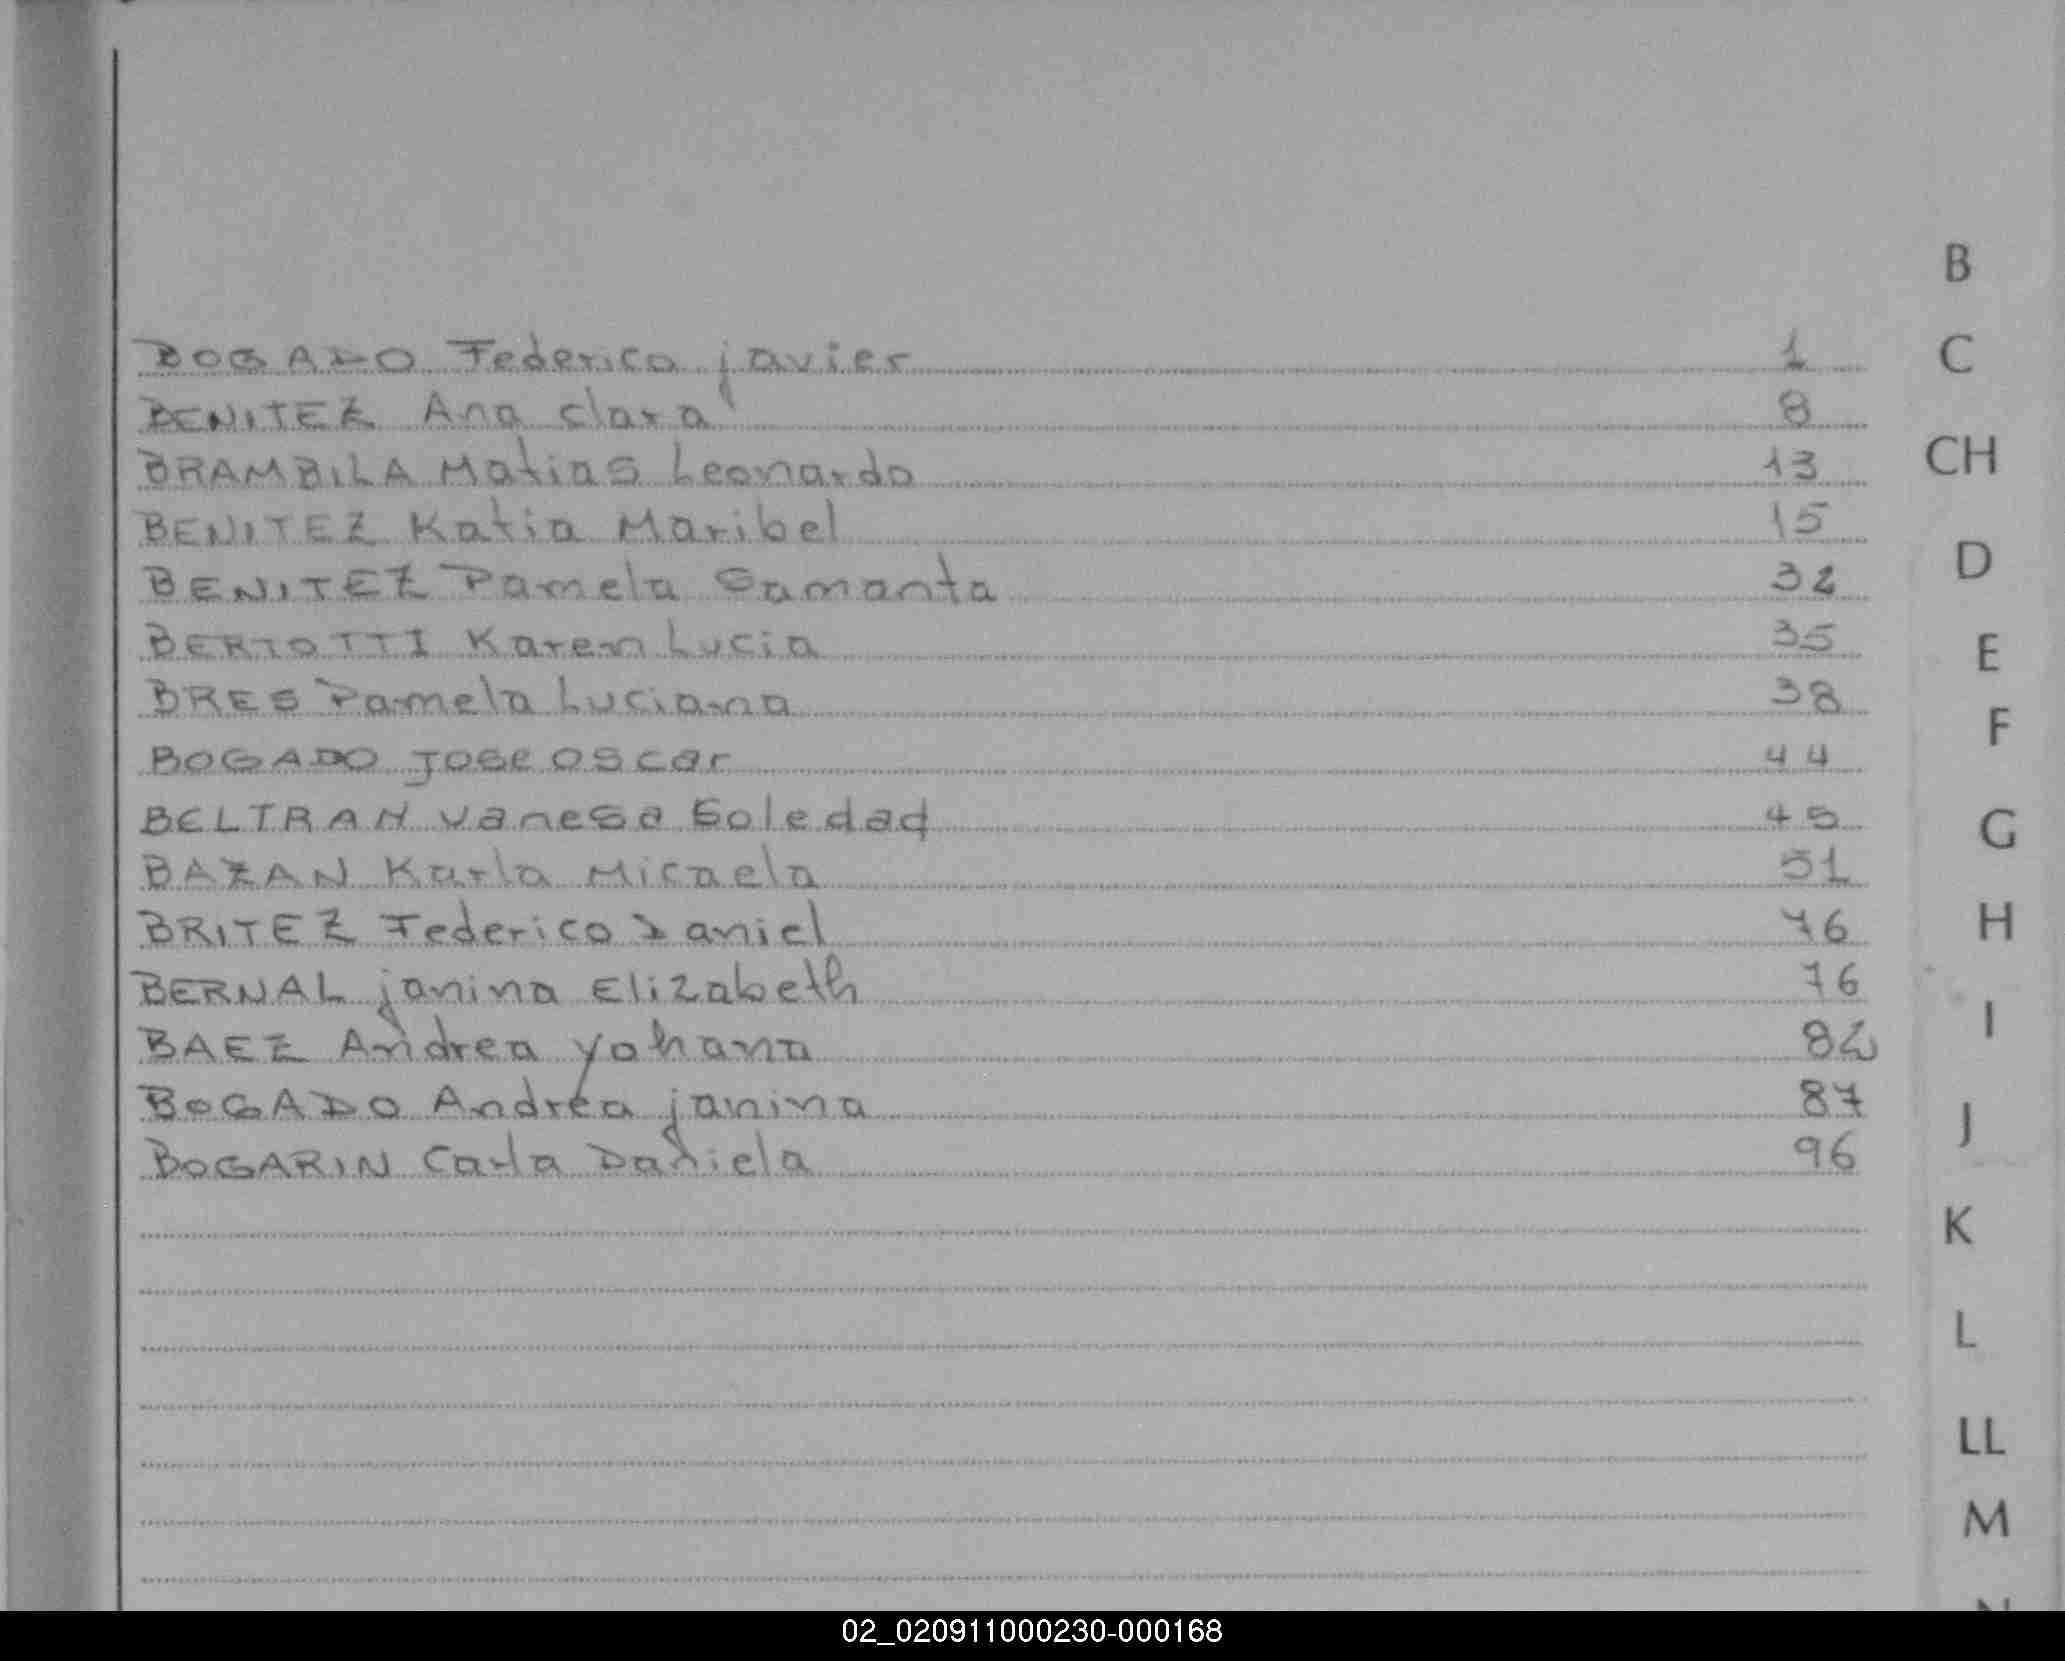 B
BOGADO Federico javier 1
C
BENITEZ Ana clara 8
BRAMBILA Matias Leonardo 13
CH
BENITEZ Katia Maribel 15
BENITEZ Pamela Samanta 32
D
BERTOTTI Karem Lucia 35
E
BRES Pamela Luciana 38
F
BOGADO Jose oscar 44
BELTRAN Vanesa Soledad 45
G
BAZAN Karla Micaela 51
BRITEZ Federico Daniel 76
H
BERNAL janina Elizabeth 76
I
BAEZ Andrea yohana
BOGADO Andrea janina 87
J
BOGARIN Carla Daniela 96
K
L
LL
M
N
02_020911000230-000168